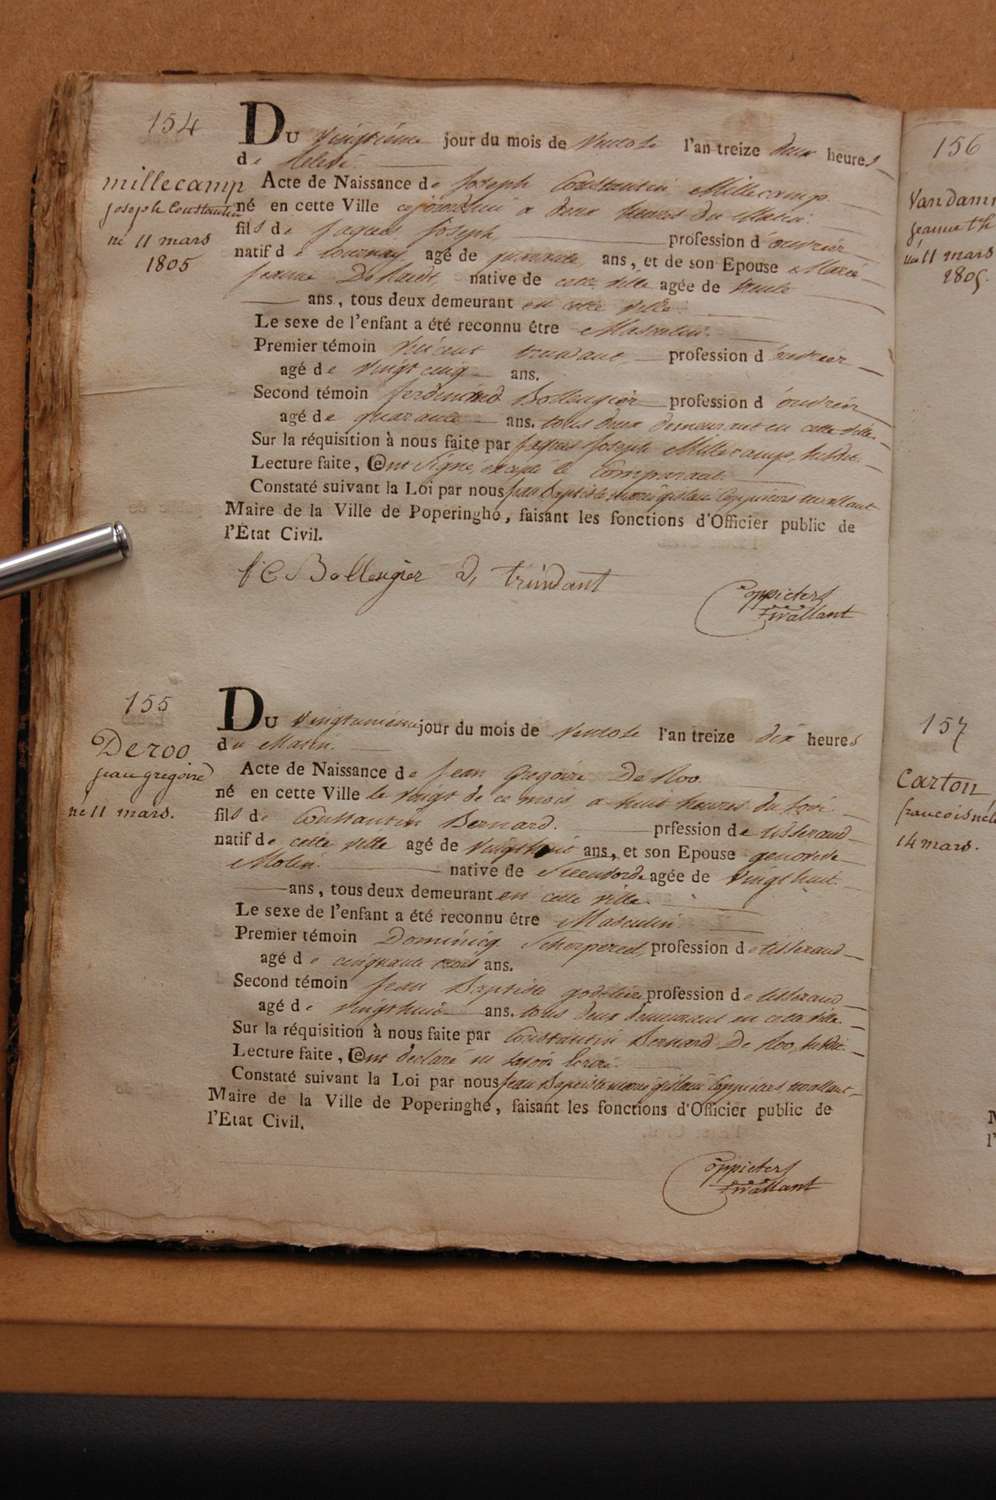 154
Du Vingtième jour du mois de Ventose l'an treize deux heures
de Relevé
millecamp
Joseph Constantin
né 11 mars
1805
Acte de Naissance de Joseph Constantin Millecamp
né en cette Ville cejourdhui a deux heures du Matin.
fils de Jaques Joseph profession d'ouvrier
natif de Tournay agé de quarante ans, et de son Epouse Marie
Jeanne native de cette ville agée de trente
ans, tous deux demeurant en cette ville.
Le sexe de l'enfant a été reconnu être Masculin.
Premier témoin profession d'ouvrier
agé de vingt cinq ans.
Second témoin ferdinand Bollengier profession d'ouvrier
agé de quarante ans. tous deux demeurant en cette ville.
Sur la réquisition à nous faite par Jaques Joseph Millecamp,
Lecture faite, Ont Signé, excepté le Comparant.
Constaté suivant la Loi par nous Jean Baptiste
Maire de la Ville de Poperinghe, faisant les fonctions d'Officier public de
l'Etat Civil.
f C Bollengier trindant
Coppieters
t'wallant
155
Du Vingtunième jour du mois de Ventose l'an treize dix heures
du Matin.
Deroo
jean gregoire
né 11 mars.
Acte de Naissance de Jean Gregoire De Roo
né en cette Ville le vingt de ce mois a huit heures du soir
fils de Constantin Bernard. prfession de tisserand
natif de cette ville agé de vingthuit ans, et son Epouse genoveve
Molin. native de Steenvorde agée de vingt huit
ans, tous deux demeurant en cette ville.
Le sexe de l'enfant a été reconnu être Masculin
Premier témoin Dominicq profession de tisserand
agé de cinquante trois ans.
Second témoin Jean Baptiste profession de tisserand
agé de vingthuit ans. tous deux demeurant en cette ville.
Sur la réquisition à nous faite par Constantin Bernard De Roo,
Lecture faite, Ont declaré ne savoir Ecrire.
Constaté suivant la Loi par nous Jean Baptiste
Maire de la Ville de Poperinghe, faisant les fonctions d'Officier public de
l'Etat Civil.
Coppieters
t'wallant
156
Vandam
jeanne th
née 11 mars
1805.
157
Carton
francois
14 mars.